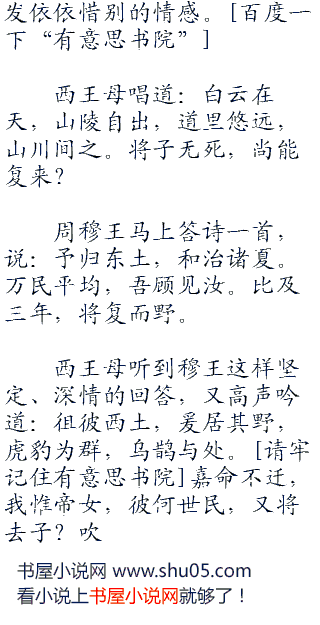 发依依惜别的情感。[百度一
下“有意思书院”]
西王母唱道：白云在
天，山陵自出，道里悠远，
山川间之。将子无死，尚能
复来？
周穆王马上答诗一首，
说：予归东土，和治诸夏。
万民平均，吾顾见汝。比及
三年，将复而野。
西王母听到穆王这样坚
定、深情的回答，又高声吟
道：徂彼西土，爰居其野，
虎豹为群，乌鹊与处。[请牢
记住有意思书院]嘉命不迁，
我惟帝女，彼何世民，又将
去子？吹
书屋小说网 www.shu05.com
看小说上书屋小说网就够了！